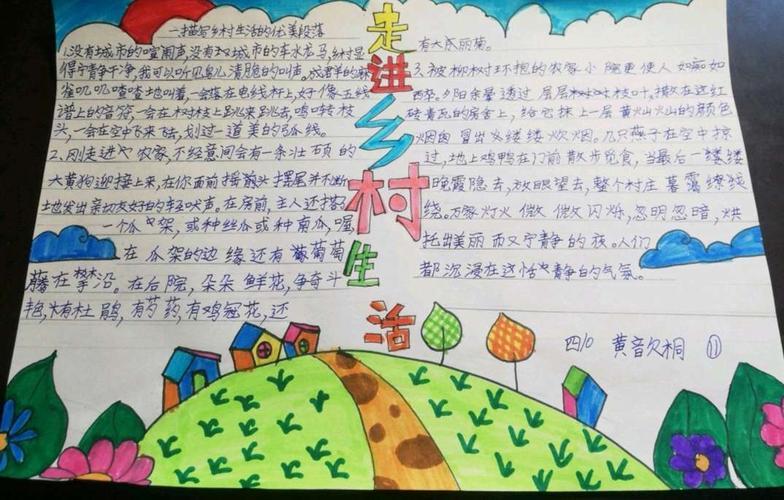 走进乡村生活
一描写乡村生活的优美段落
1.没有城市的喧闹声,没有城市的车水龙马,乡村显
得宁静干净,我可以听见鸟儿清脆的叫声,成群的麻
雀叽叽喳喳地叫着,一会落在电线杆上,好像五线
谱上的音符,一会在树枝上跳来跳去,鸣啭枝
头,一会在空中飞来飞去,划过一道美的弧线。
2.刚走进农家,不经意间会有一条壮硕的
大黄狗迎接上来,在你面前摇头摆尾并不断
地发出亲切友好的轻吠声。在房前,主人还搭
一个瓜架,或种丝瓜或种南瓜,喔,
在瓜架的边缘还有葡萄
藤在攀沿。在后院,朵朵鲜花,争奇斗
艳,有杜鹃,有芍药,有鸡冠花,还
有大丽菊。
3.被柳树环抱的农家小院更使人如痴如
醉。夕阳余晕透过层层树枝叶,撒在这红
砖青瓦的房舍上,给它抹上一层黄灿灿的颜色
烟囱冒出缕缕炊烟。几只燕子在空中掠
过,地上鸡鸭在门前散步觅食,当最后一缕缕
晚霞隐去,放眼望去,整个村庄暮霭缭绕
绕。万家灯火微微闪烁,忽明忽暗,烘
托出美丽而又宁静的夜。人们
都沉浸在这恬静的气氛。
四10 黄音欠桐 ⑪